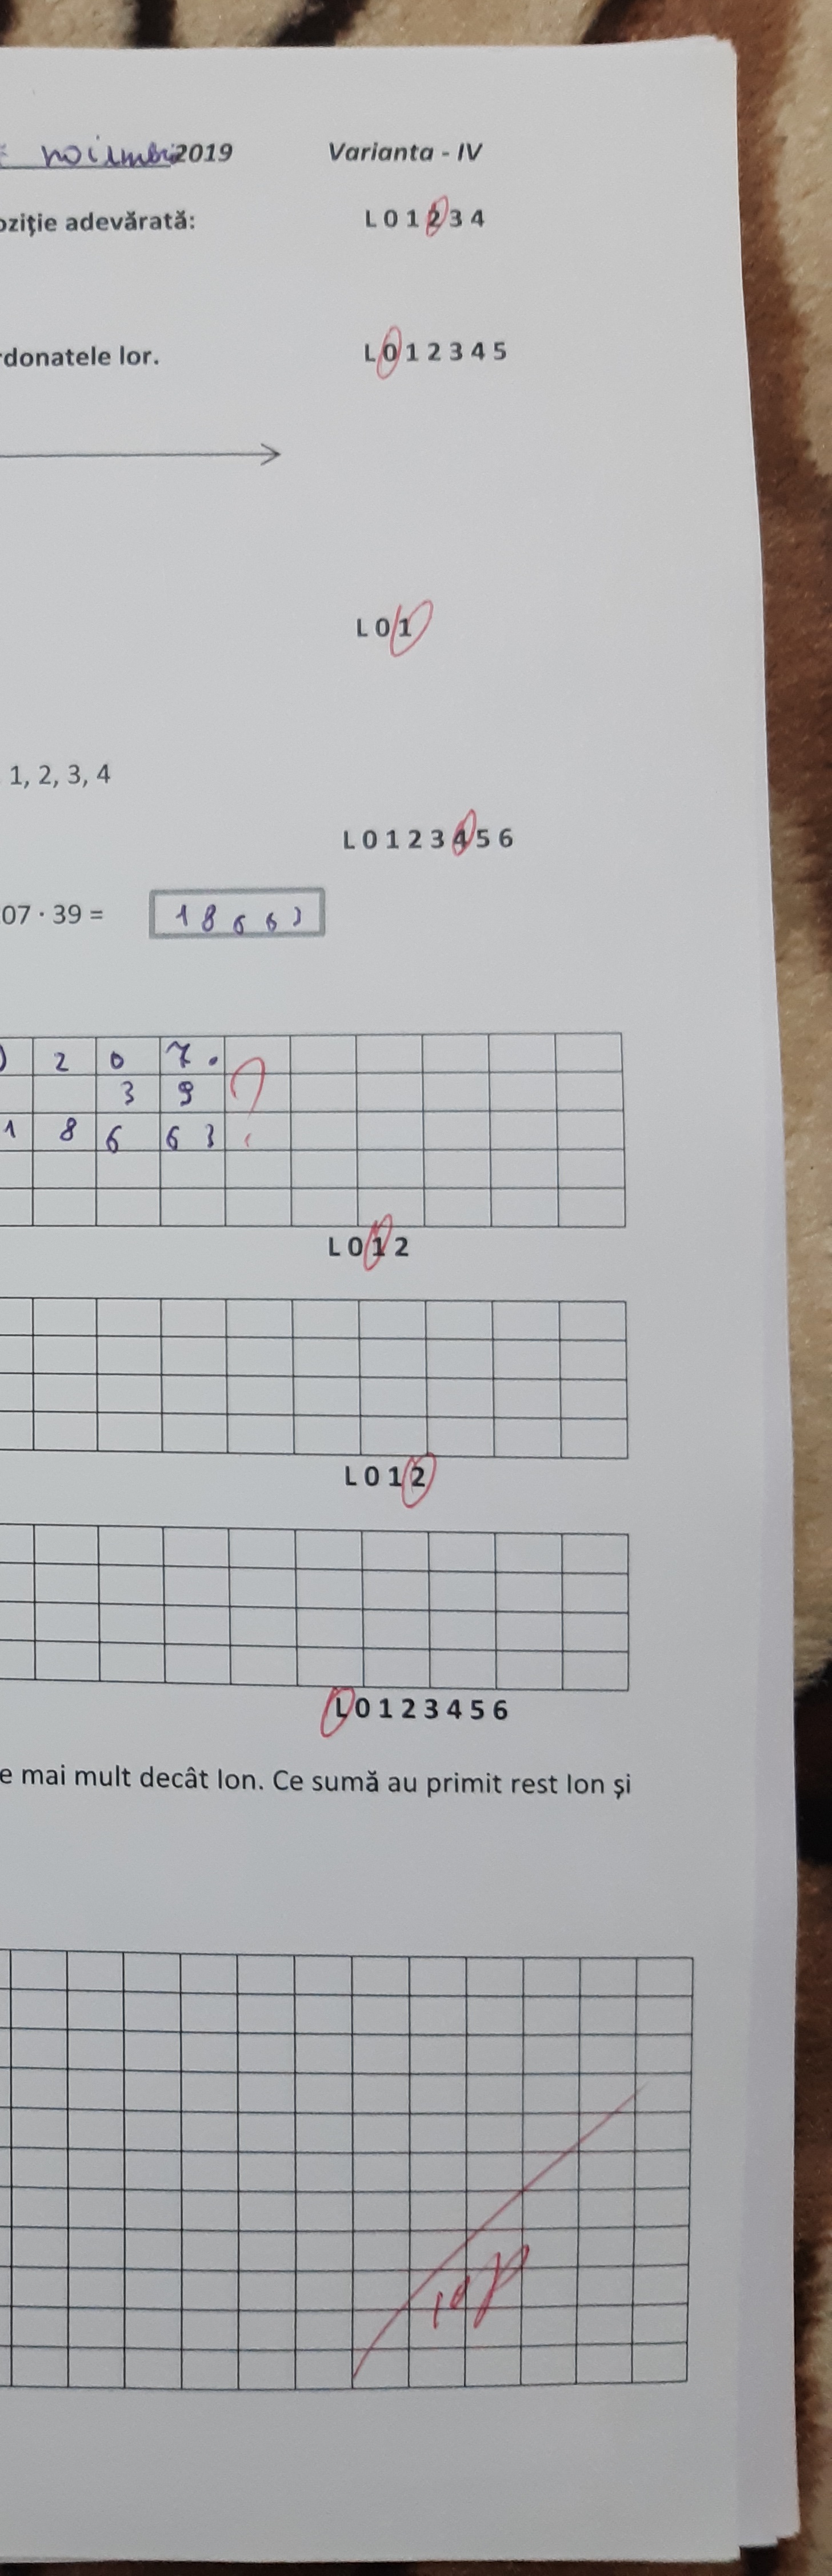 noiembrie 2019 Varianta - IV
oziţie adevărată: L 0 1 2 3 4
rdonatele lor. L 0 1 2 3 4 5
L 0 1
1, 2, 3, 4
L 0 1 2 3 4 5 6
07 · 39 = 18663
2 0 7 .
3 9
1 8 6 6 3
L 0 1 2
L 0 1 2
L 0 1 2 3 4 5 6
e mai mult decât Ion. Ce sumă au primit rest Ion şi
10p